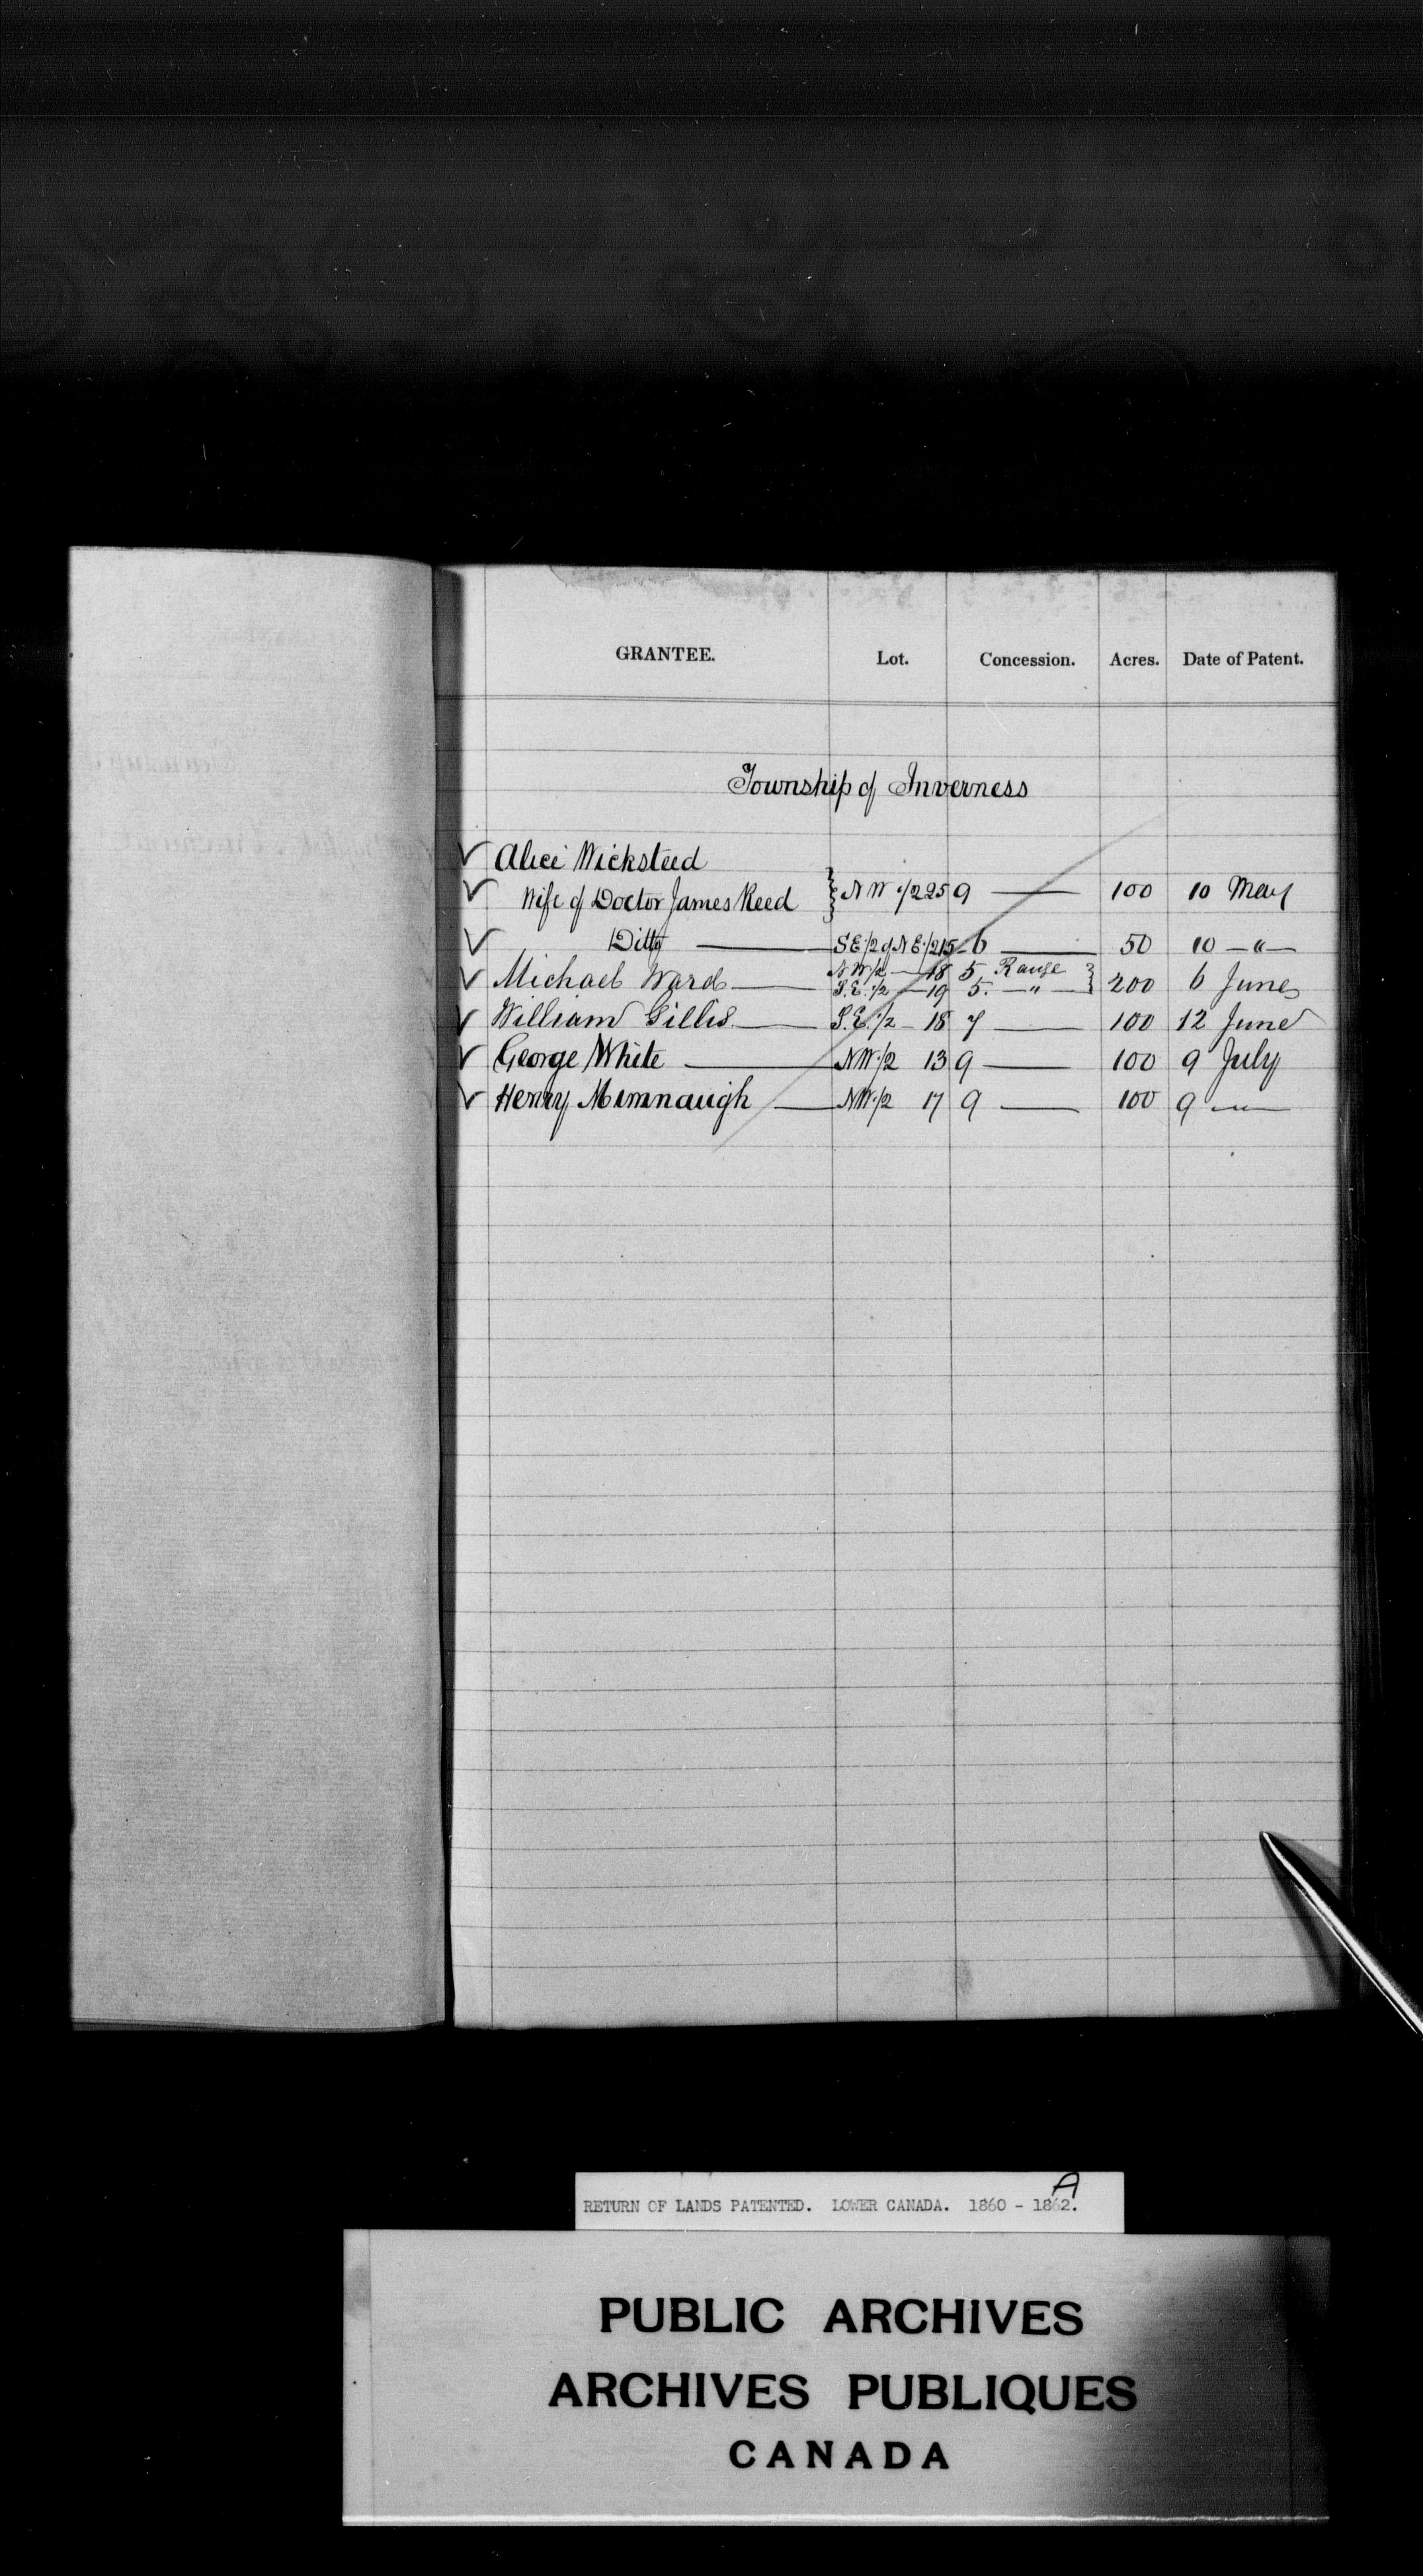 GRANTEE. Lot. Concession. Acres. Date of Patent.
Township of Inverness
Alice Wicksteed
Wife of Doctor James Reed } N W 1/2 25 9 — 100 10 May
Ditto — S E 1/2 of N E 1/2 15 6 — 50 10 — " —
Michael Ward — N W 1/2 — 18 5 Range } 200 6 June
S. E. 1/2 — 19 5. — " —
William Gillis — S. E. 1/2 — 18 7 — 100 12 June
George White — N W 1/2 13 9 — 100 9 July
Henry Mimnaugh — N W 1/2 17 9 — 100 9 — " —
RETURN OF LANDS PATENTED. LOWER CANADA. 1860 - 1862. A
PUBLIC ARCHIVES
ARCHIVES PUBLIQUES
CANADA